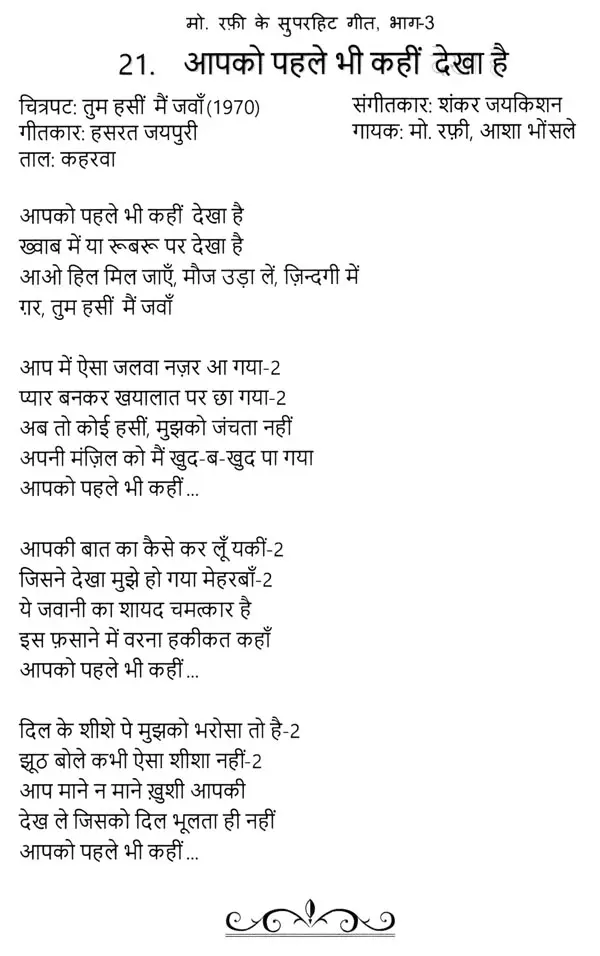 मो. रफ़ी के सुपरहिट गीत, भाग-3
21. आपको पहले भी कहीं देखा है
चित्रपट: तुम हसीं मैं जवाँ(1970) संगीतकार: शंकर जयकिशन
गीतकार: हसरत जयपुरी गायक: मो. रफ़ी, आशा भोंसले
ताल: कहरवा
आपको पहले भी कहीं देखा है
ख्वाब में या रूबरू पर देखा है
आओ हिल मिल जाएँ, मौज उड़ा लें, ज़िन्दगी में
ग़र, तुम हसीं मैं जवाँ
आप में ऐसा जलवा नज़र आ गया-2
प्यार बनकर खयालात पर छा गया-2
अब तो कोई हसीं, मुझको जंचता नहीं
अपनी मंज़िल को मैं खुद-ब-खुद पा गया
आपको पहले भी कहीं...
आपकी बात का कैसे कर लूँ यकीं-2
जिसने देखा मुझे हो गया मेहरबाँ-2
ये जवानी का शायद चमत्कार है
इस फ़साने में वरना हकीकत कहाँ
आपको पहले भी कहीं...
दिल के शीशे पे मुझको भरोसा तो है-2
झूठ बोले कभी ऐसा शीशा नहीं-2
आप माने न माने ख़ुशी आपकी
देख ले जिसको दिल भूलता ही नहीं
आपको पहले भी कहीं...